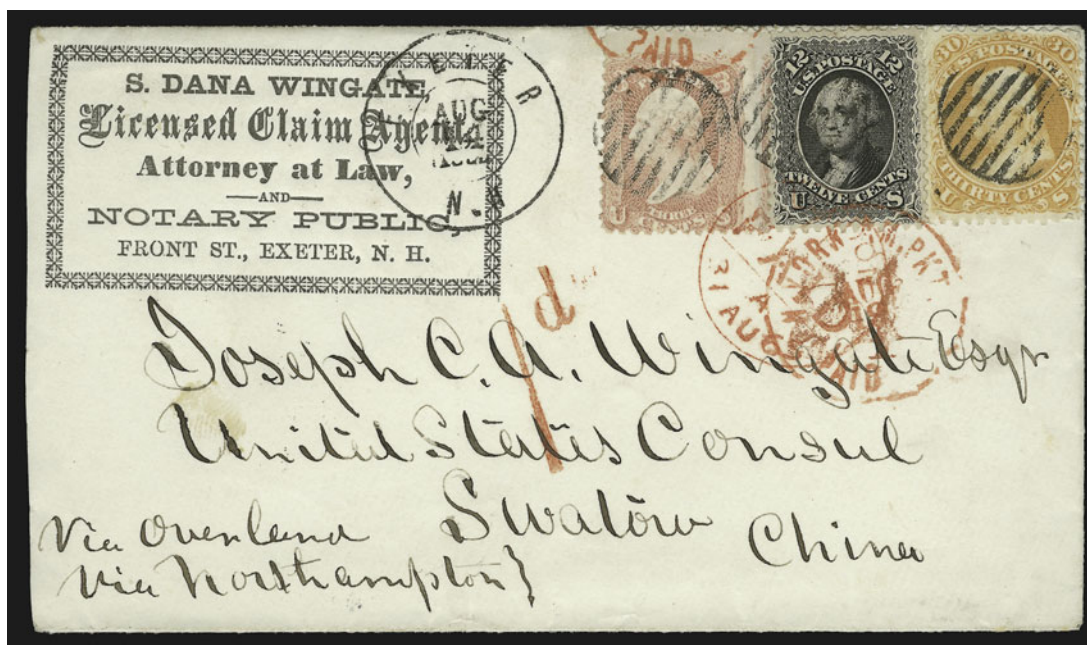 S. DANA WINGATE,
Licensed Claim Agent,
Attorney at Law,
—AND—
NOTARY PUBLIC,
FRONT ST., EXETER, N. H.
EXETER
AUG
14
N.H
PAID
U THREE CENTS S
12 U.S. POSTAGE 12
U TWELVE CENTS S
30 U.S. POSTAGE 30
U THIRTY CENTS S
YORK AM. PKT
31 AUG
PAID
1d
Joseph C. A. Wingate Esqr
United States Consul
Swatow
China
Via Overland
Via Northampton}